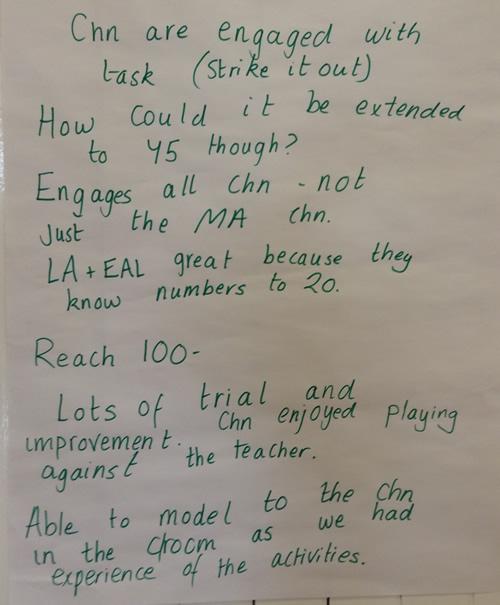 Chn are engaged with
task (Strike it out)
How could it be extended
to Y5 though?
Engages all chn - not
just the MA chn.
LA + EAL great because they
know numbers to 20.
Reach 100-
Lots of trial and
improvement. Chn enjoyed playing
against the teacher.
Able to model to the chn
in the c/room as we had
experience of the activities.